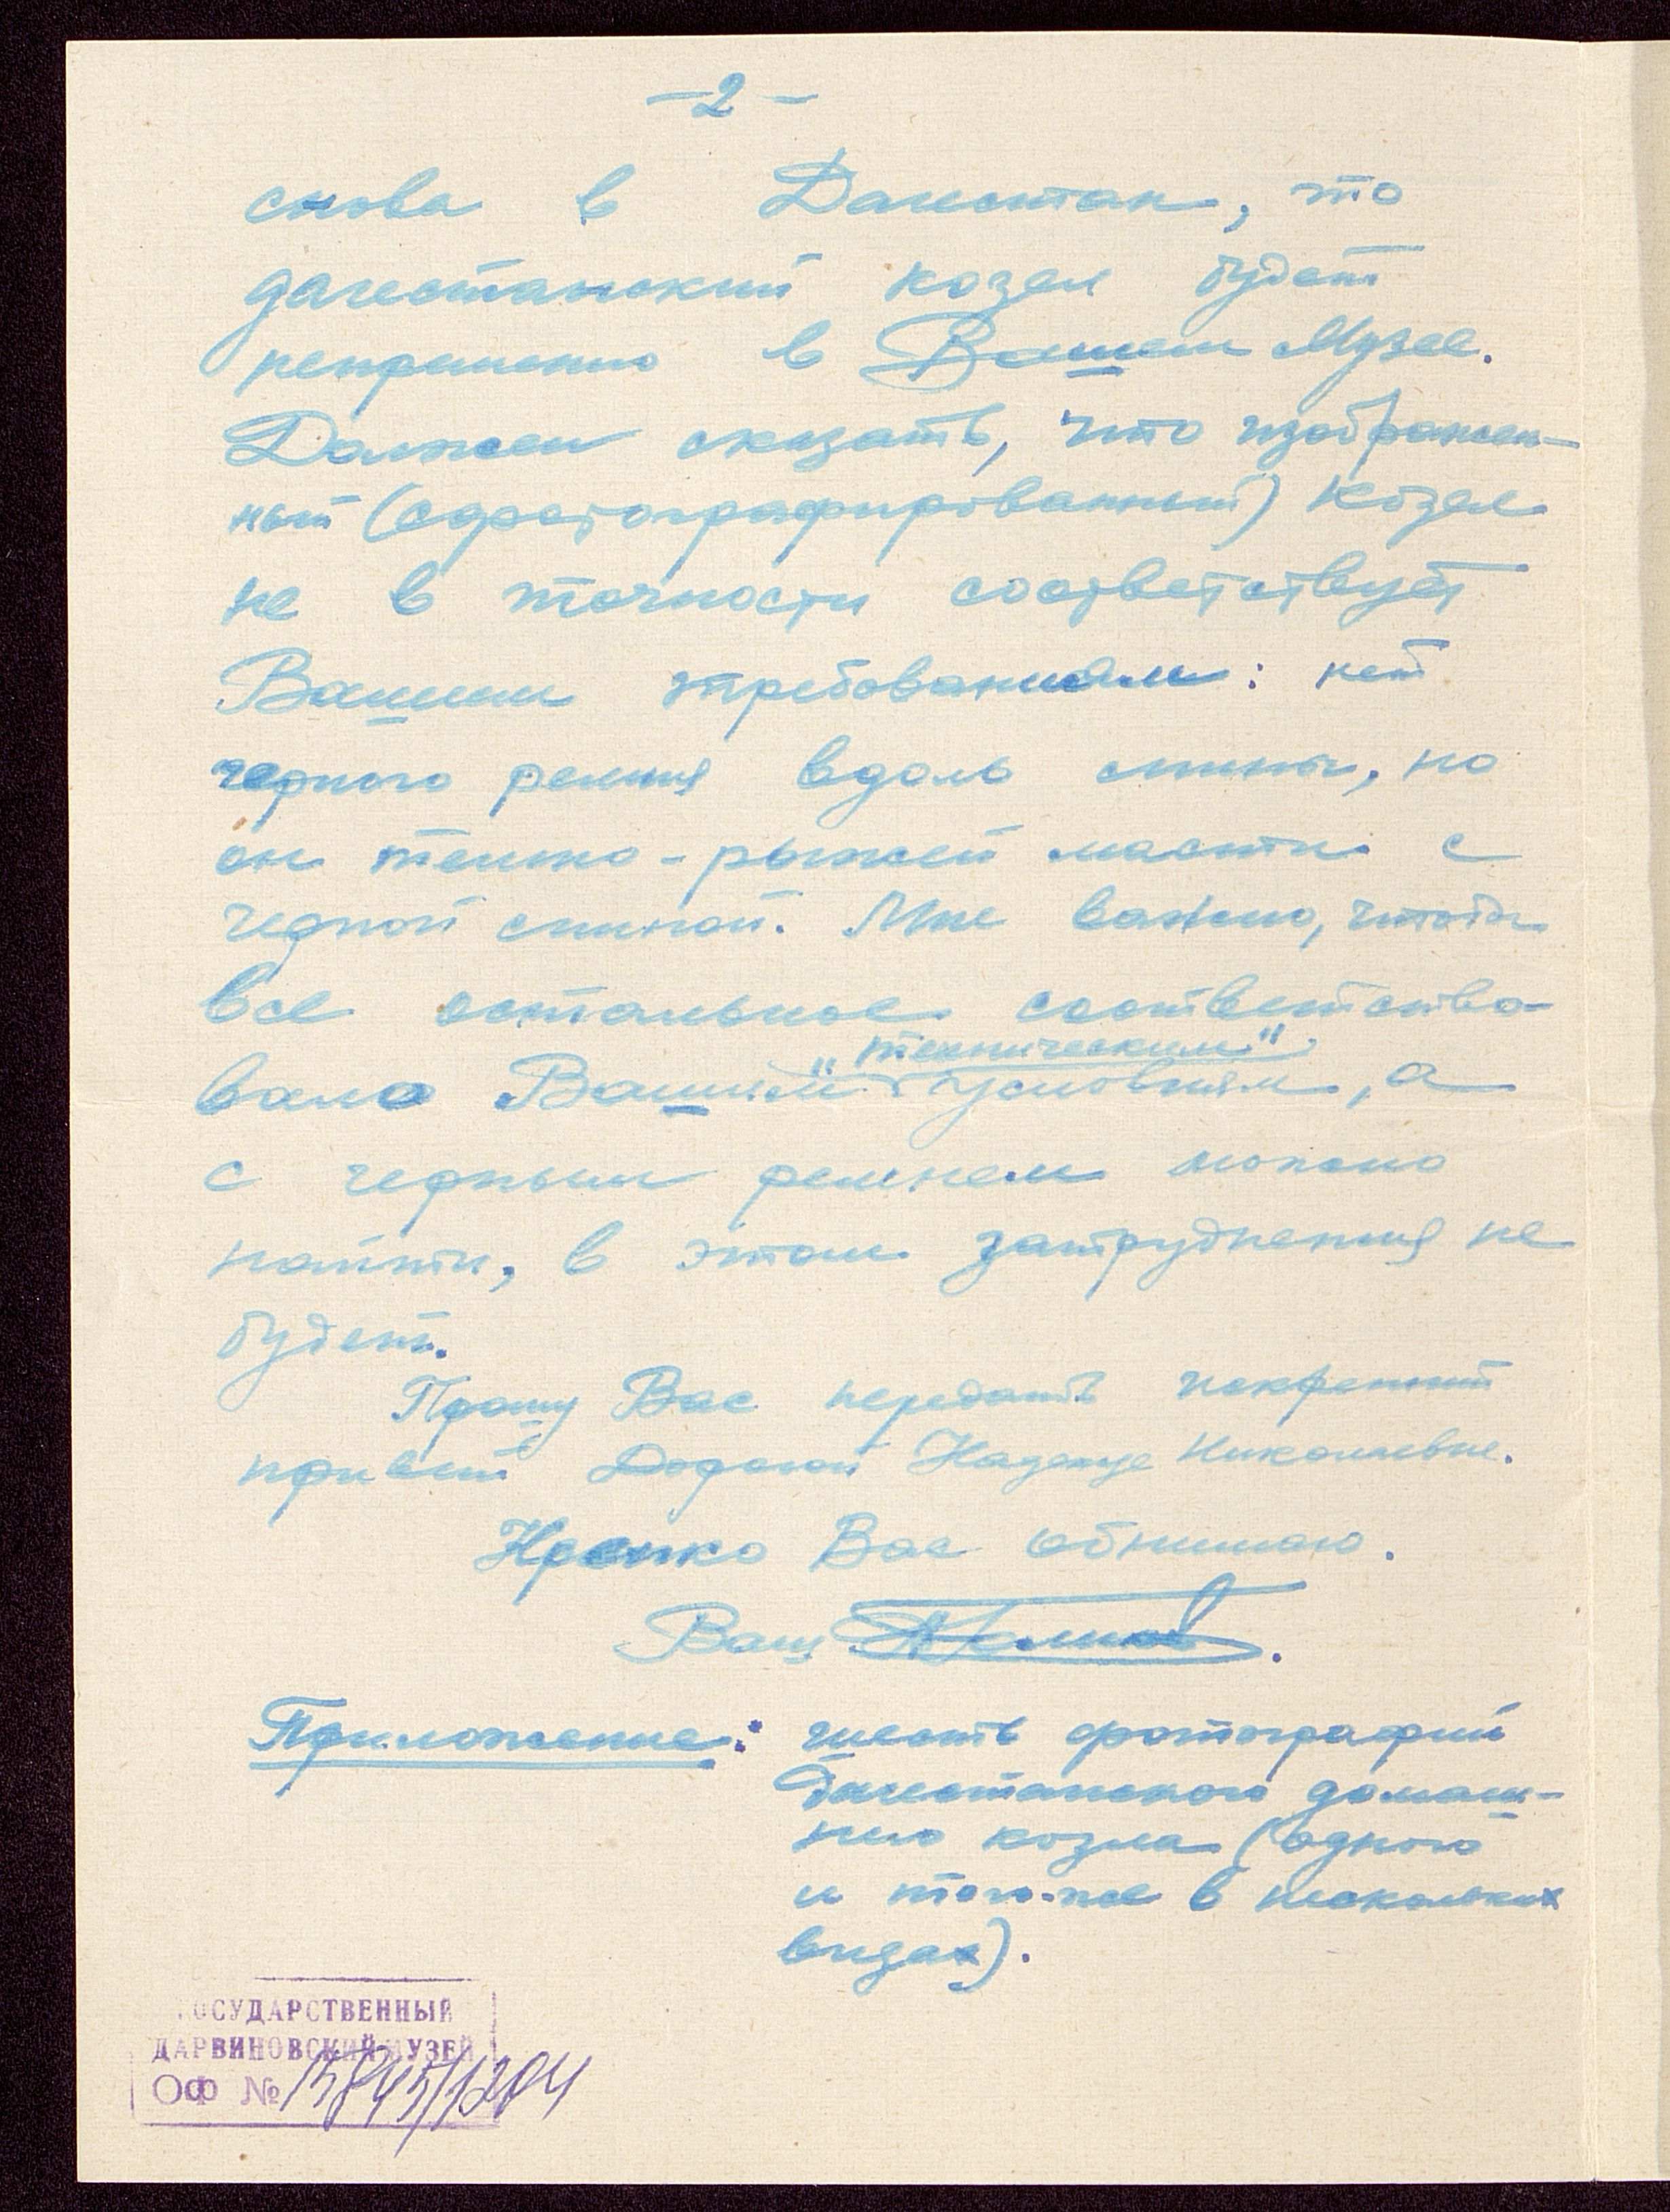 -2-
снова в Дагестан, то
дагестанский козел будет
непременно в Вашем Музее.
Должен сказать, что изображен-
ный (сфотографированный) козел
не в точности соответствует
Вашим требованиям: нет
черного ремня вдоль спины, но
он темно-рыжей масти с
черной спиной. Мне важно, чтобы
все остальное соответство-
вало Вашим „техническим" условиям, а
с черным ремнем можно
найти, в этом затруднения не
будет.
Прошу Вас передать искренний
привет Дорогой Надежде Николаевне.
Крепко Вас обнимаю.
Ваш
Приложение: шесть фотографий
дагестанского домаш-
него козла (одного
и того-же в нескольких
видах).
ГОСУДАРСТВЕННЫЙ
ДАРВИНОВСКИЙ МУЗЕЙ
ОФ № 15845/1204